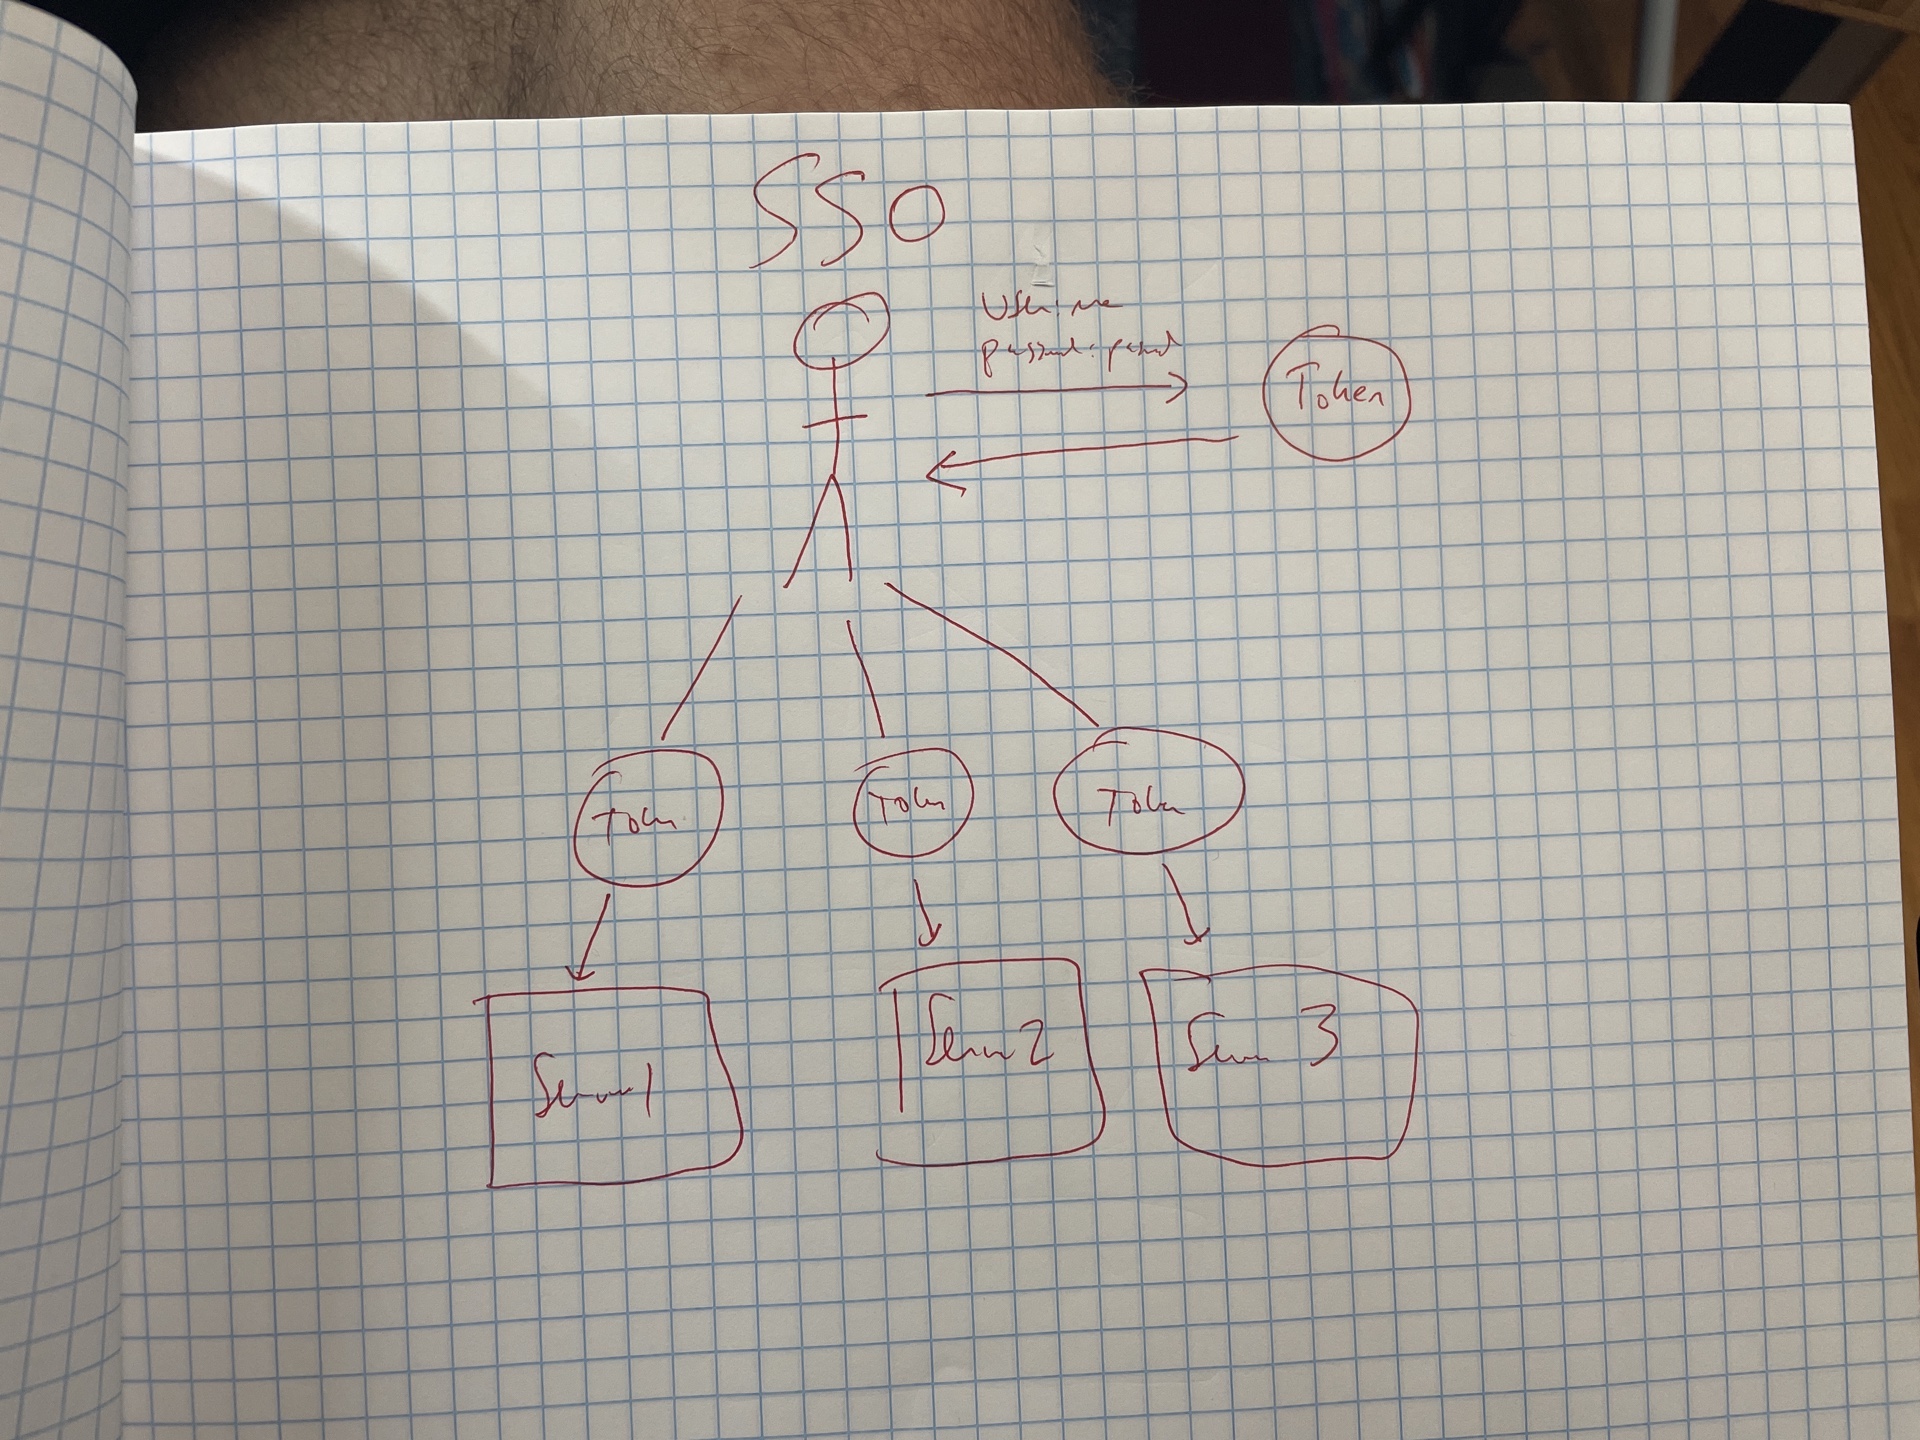 SSO
User: me
passwd: passwd
Token
Token
Token
Token
Server 1
Server 2
Server 3